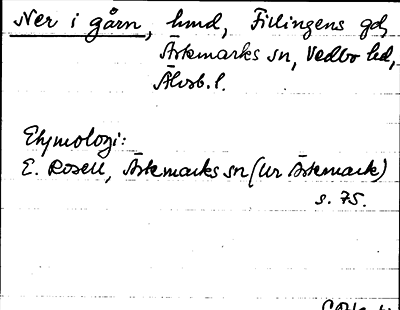 Ner i gårn, hmd, Fillingens gd,
Ärtemarks sn, Vedbo hd,
Älvsb. l.
Etymologi:
E. Rosell, Ärtemarks sn (Ur Ärtemark)
s. 75.